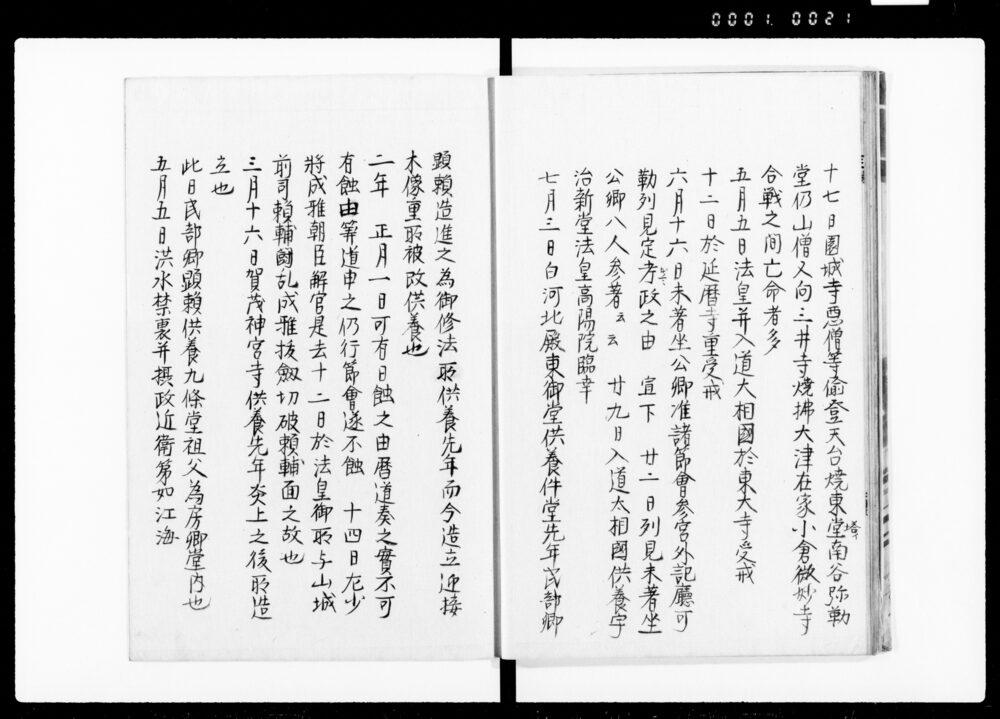 0001. 0021
十七日園城寺悪僧等偷登天台燒東堂南谷弥勒
塔歟
堂仍山僧又向三井寺燒拂大津在家小倉微妙寺
合戦之间亡命者多
五月五日法皇并入道大相國於東大寺受戒
十二日於延暦寺重受戒
六月十六日未著坐公卿准諸節會参宮外記廳可
勤列見定考政之由　宣下　廿二日列見未著坐
公卿八人参著云云　廿九日入道太相國供養宇
治新堂法皇高陽院臨幸
七月三日白河北殿東御堂供養件堂先年民部卿
顕頼造進之為御修法所供養先年而今造立迎接
木像重所被改供養也
二年　正月一日可有日蝕之由暦道奏之實不可
有蝕由筭道申之仍行節會遂不蝕　十四日左少
將成雅朝臣解官是去十二日於法皇御所与山城
前司頼輔闘乱成雅拔劔切破頼輔面之故也
三月十六日賀茂神宮寺供養先年炎上之後所造
立也
此日民部卿顕頼供養九條堂祖父為房卿堂内也
五月五日洪水禁裏并摂政近衛第如江海